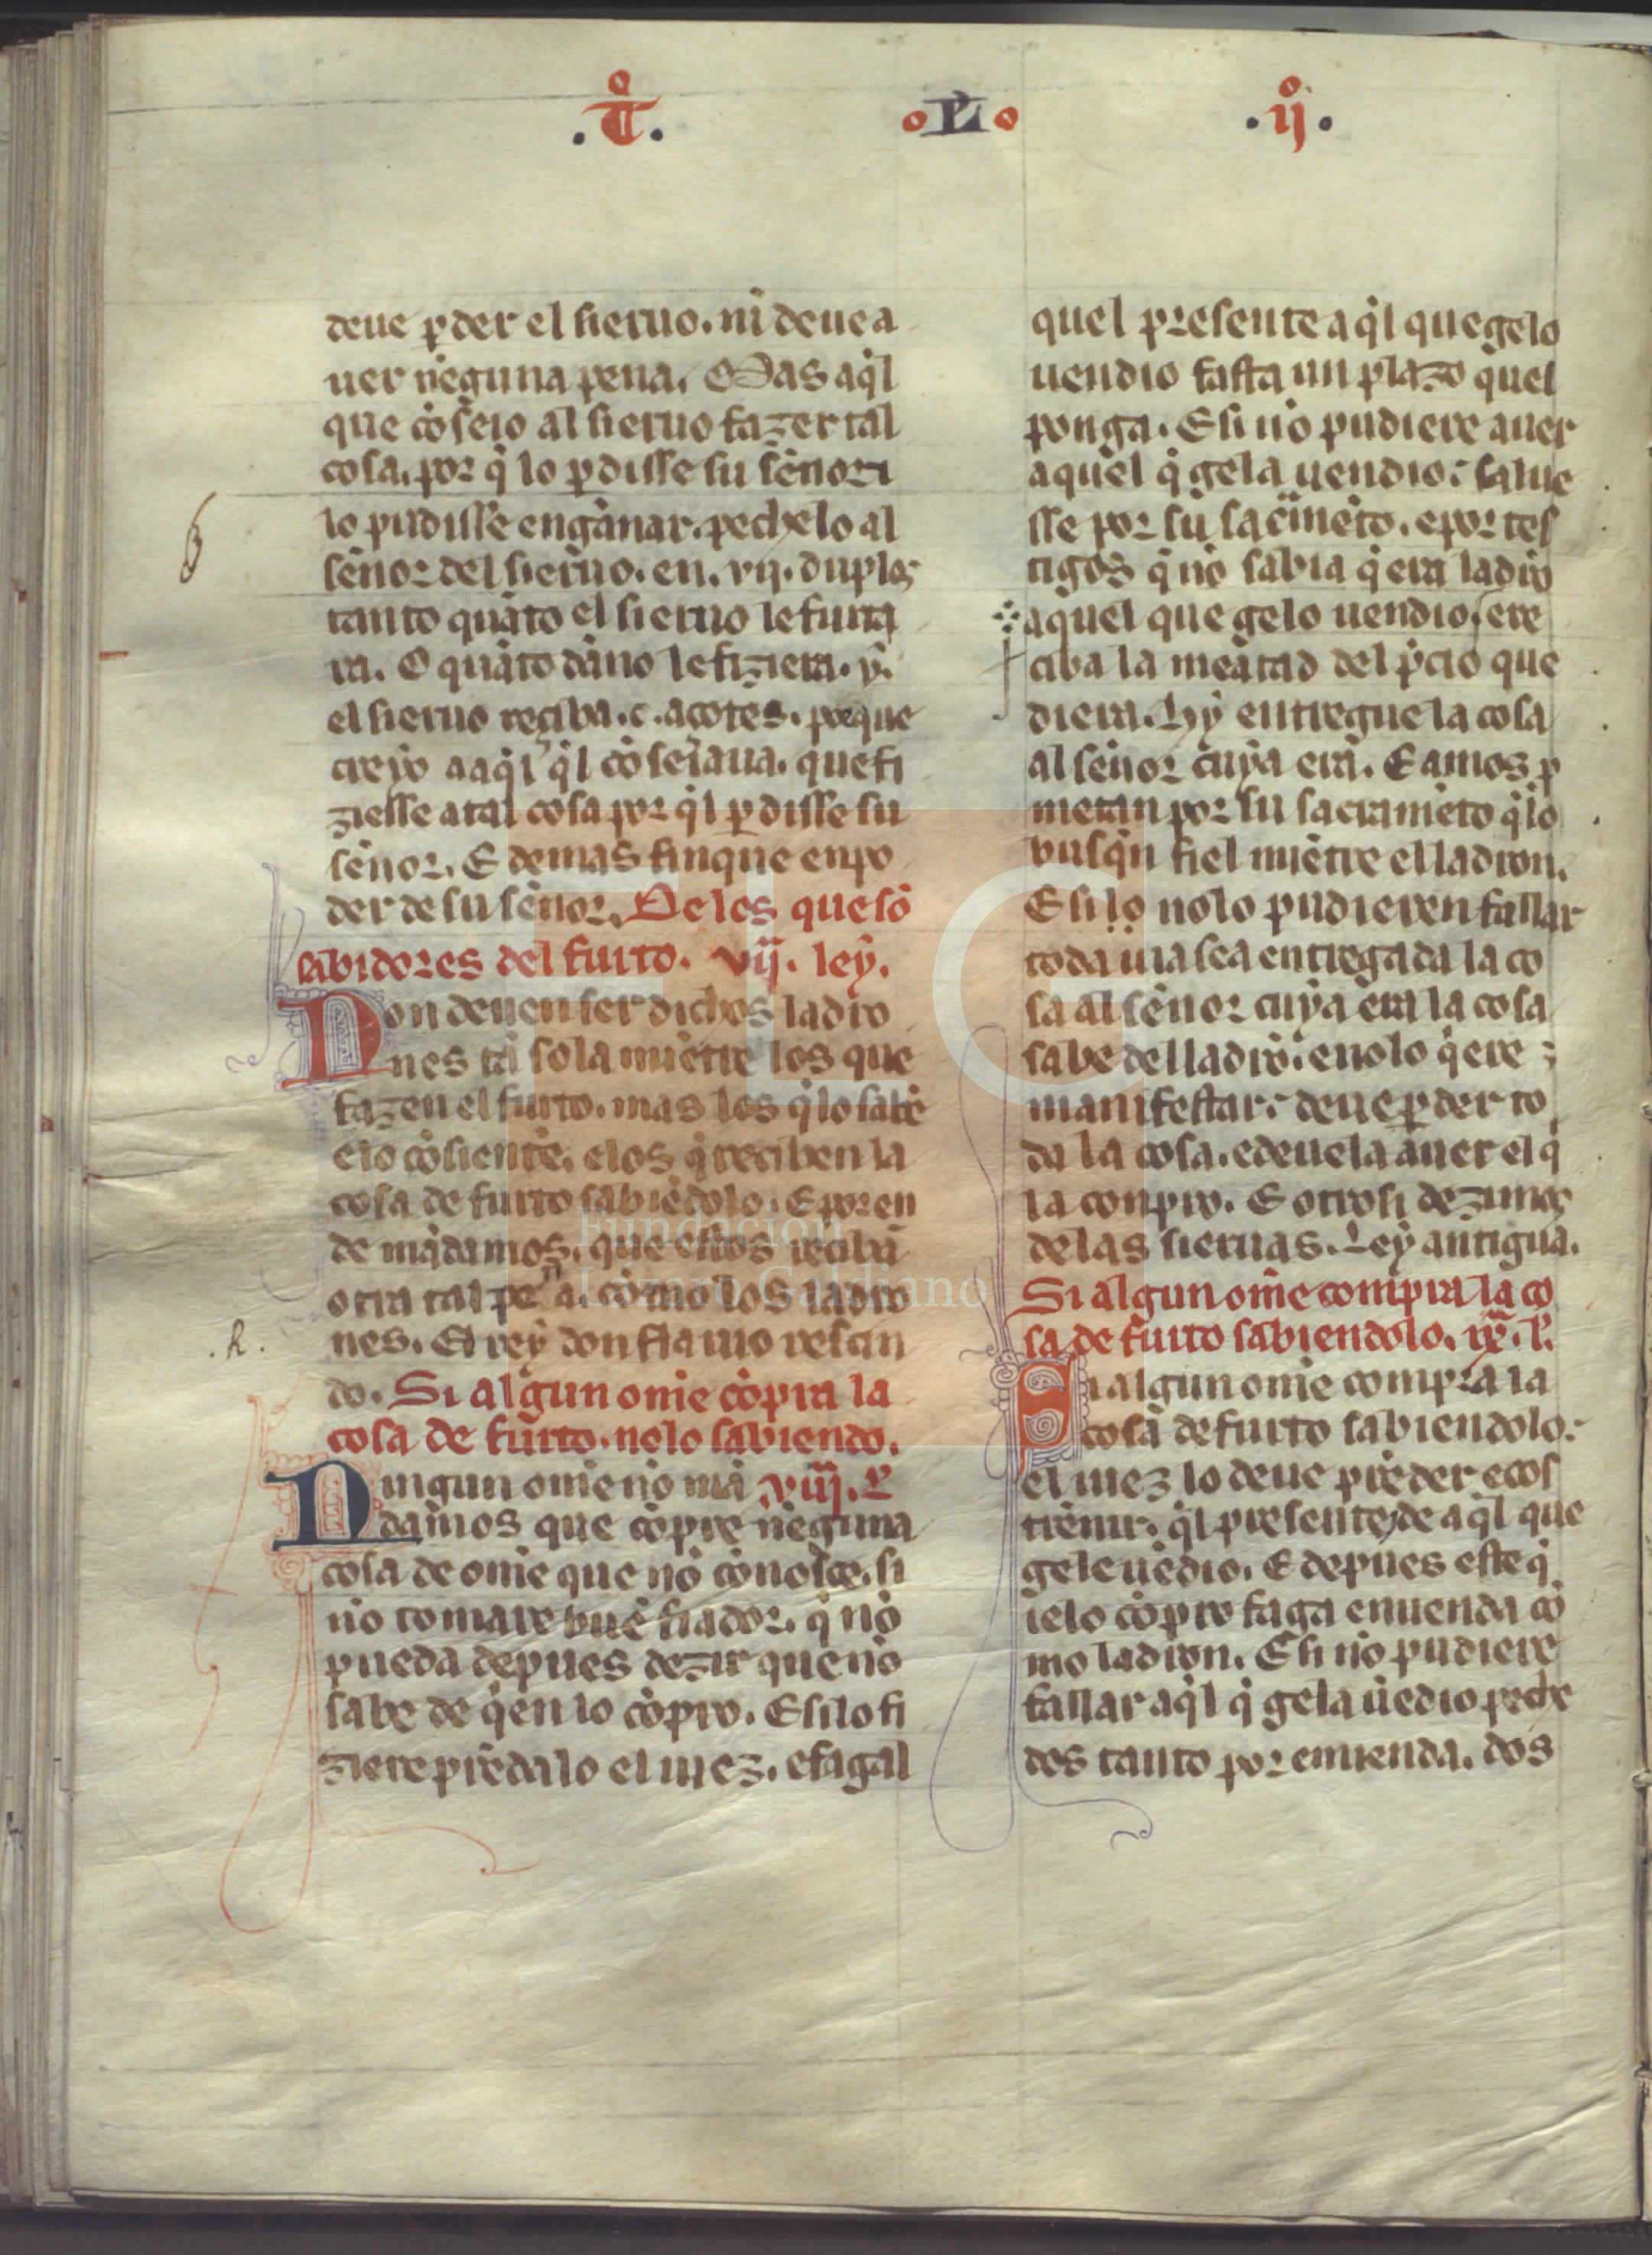 .T͠º. ºLº .ijº.
deue ꝑder el sieruo. ni deue a
uer neguna pena. Mas aql̃
que cõseio al sieruo fazer tal
cosa, por q̃ lo ꝑdisse su senor. ⁊
lo pudisse enganar. pechelo al
senor del sieruo. en. vij. duplos
tanto quãto el sieruo le furta
ra. O quãto dãno le fiziera. ⁊
el sieruo reciba .c. açotes. porque
creyo a aql̃ ql̃ cõseiaua. que fi
ziesse atal cosa por ql̃ ꝑdisse su
senor. E demas finque en po
der de su senor. De los que sõ
sabidores del furto. vij. ley.
Non deuen ser dichos ladro
nes tã sola miẽtre los que
fazen el furto. mas los q̃ lo sabẽ
e lo cõsientẽ. e los q̃ reciben la
cosa de furto sabiẽdolo. E por en
de mãdamos. que estos recibã
otra tal pena. como los ladro
nes. El rey don flauio rescin
do. Si algun ome cõpra la
cosa de furto. nolo sabiendo.
Ningun ome no mã viij. L̃
damos que cõpre neguna
cosa de ome que nõ conosce. si
no tomare buẽ fiador. q̃ nõ
pueda depues dezir que nõ
sabe de qẽn lo cõpro. E si lo fi
ziere prẽdalo el iuez. e fagal
quel presente a ql̃ que gelo
uendio fasta un plazo quel
ponga. E si nõ pudiere auer
aquel q̃ gela uendio: salue
sse por su sac̃mẽto. e por tes
tigos q̃ nõ sabia q̃ era ladrõ
aquel que gelo uendio, e re
ciba la meatad del p̃cio que
diera. Hy entregue la cosa
al senor cuya era. E amos ꝓ
metan por su sacramẽto q̃ lo
busqñ fiel miẽtre el ladron.
E si lo nolo pudieren fallar
toda uia sea entregada la co
sa al senor cuya era la cosa
sabe del ladrõ. e nolo q̃ere
manifestar: deue ꝑder to
da la cosa. e deuela auer el q̃
la conpro. E otrosi dezimos
de las sieruas. Ley antigua.
Si algun ome compra la co
sa de furto sabiendolo. ix. l̃.
Si algun ome compra la
cosa de furto sabiendolo:
el iuez lo deue prẽder e cos
trẽnir. ql̃ presente de aql̃ que
gele uẽdio. E depues este q̃
ielo cõpro faga emienda co
mo ladron. E si nõ pudiere
fallar aql̃ q̃ gela uẽdio peche
dos tanto por emienda. dos
.h.
Fundación
Lázaro Galdiano
FLG